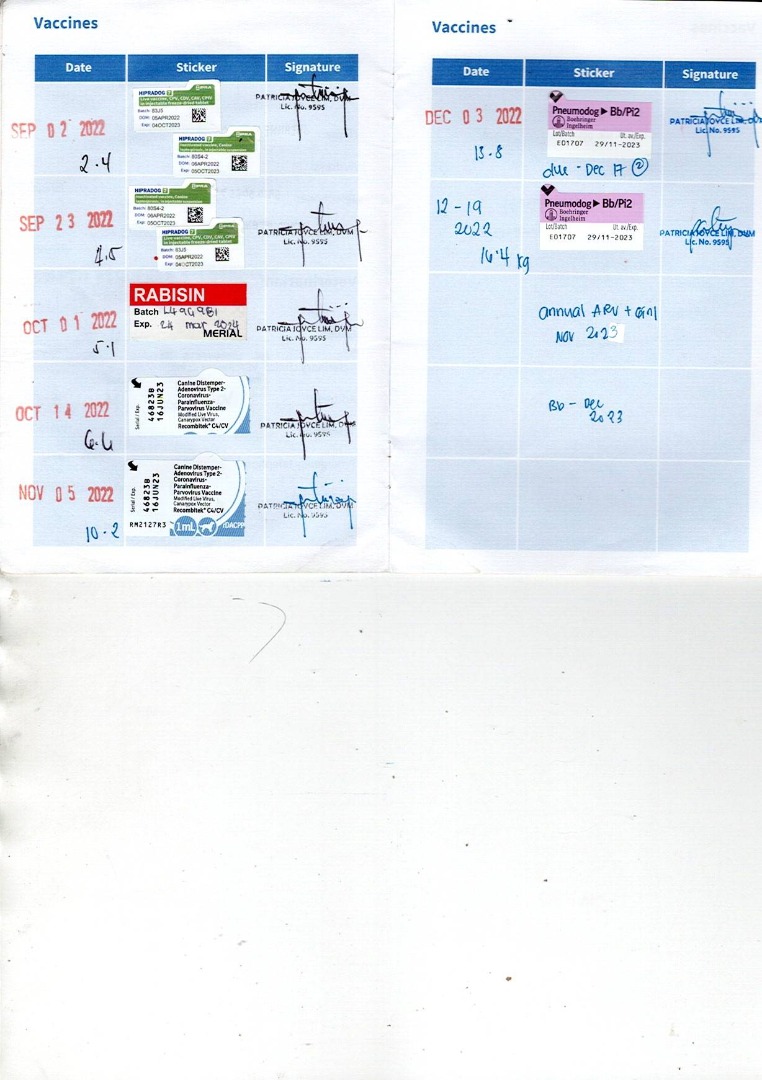 Vaccines
Date Sticker Signature
SEP 02 2022
2.4
HIPRADOG 7 HIPRA
Live vaccine, CPV, CDV, CAV, CPIV
in injectable freeze-dried tablet
Batch: 83J5
DOM: 05APR2022
Exp: 04OCT2023
HIPRADOG 7 HIPRA
Inactivated vaccine, Canine
in injectable suspension
Batch: 80S4-2
DOM: 06APR2022
Exp: 05OCT2023
PATRICIA JOYCE LIM, DVM
Lic. No. 9595
SEP 23 2022
4.5
HIPRADOG 7 HIPRA
Inactivated vaccine, Canine
in injectable suspension
Batch: 80S4-2
DOM: 06APR2022
Exp: 05OCT2023
HIPRADOG 7 HIPRA
Live vaccine, CPV, CDV, CAV, CPIV
in injectable freeze-dried tablet
Batch: 83J5
DOM: 05APR2022
Exp: 04OCT2023
PATRICIA JOYCE LIM, DVM
Lic. No. 9595
OCT 01 2022
5.1
RABISIN
Batch L490981
Exp. 24 mar 2024
MERIAL
PATRICIA JOYCE LIM, DVM
Lic. No. 9595
OCT 14 2022
Serial / Exp.
46823B
16JUN23
Canine Distemper-
Adenovirus Type 2-
Coronavirus-
Parainfluenza-
Parvovirus Vaccine
Modified Live Virus,
Canarypox Vector
Recombitek® C4/CV
PATRICIA JOYCE LIM, DVM
Lic. No. 9595
NOV 05 2022
10.2
Serial / Exp.
46823B
16JUN23
RM2127R3
Canine Distemper-
Adenovirus Type 2-
Coronavirus-
Parainfluenza-
Parvovirus Vaccine
Modified Live Virus,
Canarypox Vector
Recombitek® C4/CV
1mL rDACPP
PATRICIA JOYCE LIM, DVM
Lic. No. 9595
Vaccines
Date Sticker Signature
DEC 03 2022
13.8
Pneumodog ▶ Bb/Pi2
Boehringer
Ingelheim
Lot/Batch Ut. av./Exp.
E01707 29/11-2023
due - Dec 17 ②
PATRICIA JOYCE LIM, DVM
Lic. No. 9595
12-19
2022
16.4 kg
Pneumodog ▶ Bb/Pi2
Boehringer
Ingelheim
Lot/Batch Ut. av./Exp.
E01707 29/11-2023
PATRICIA JOYCE LIM, DVM
Lic. No. 9595
annual ARV +
NOV 2023
Bb - Dec
2023